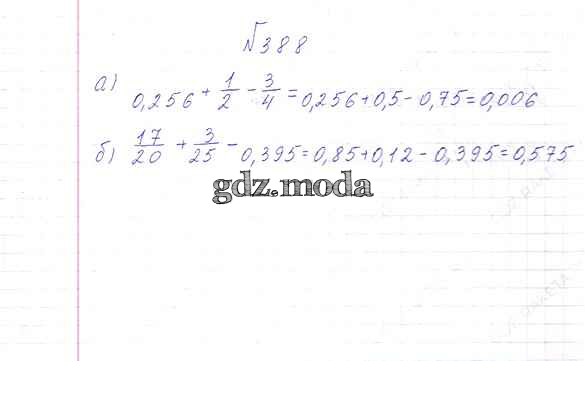 №388
а) 0,256 + 1/2 - 3/4 = 0,256+0,5-0,75=0,006
б) 17/20 + 3/25 - 0,395=0,85+0,12-0,395=0,575
gdz.moda